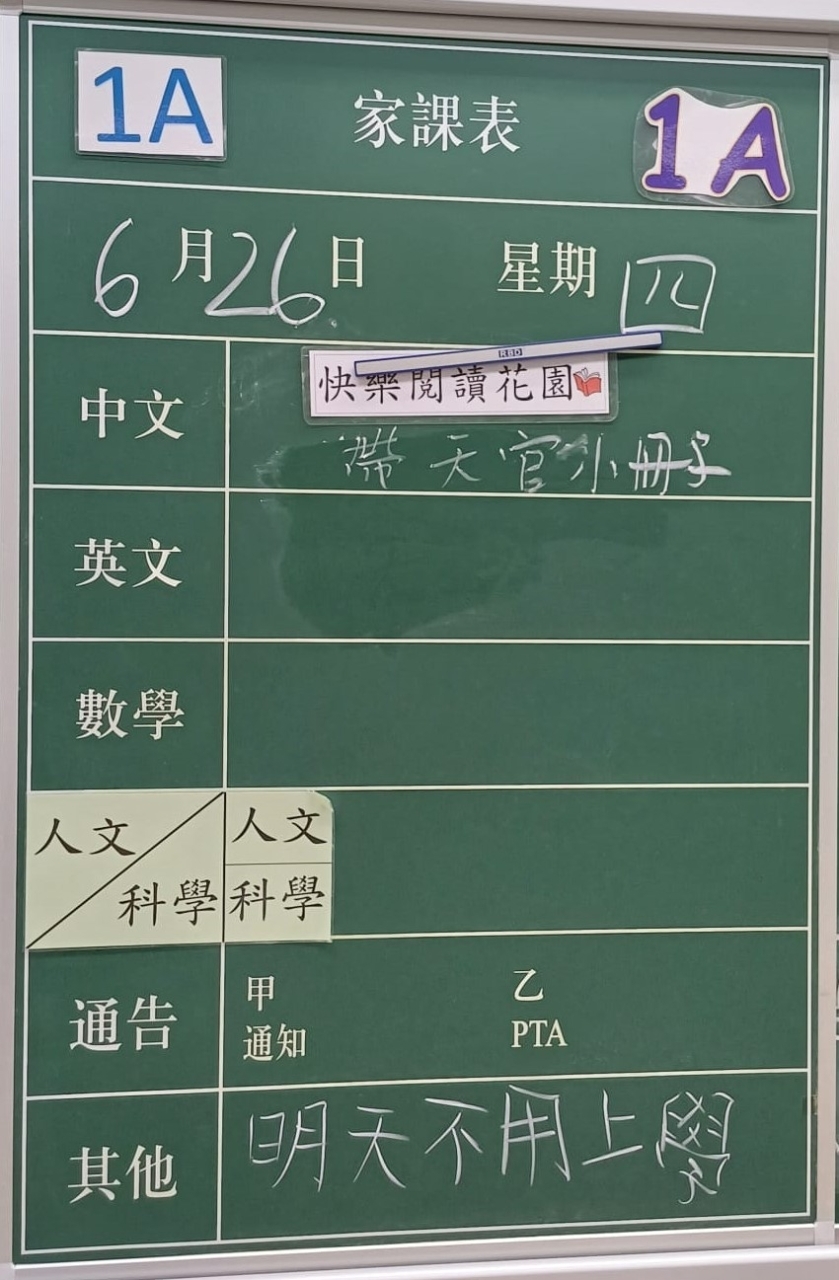 1A 家課表 1A
6月26日 星期 四
RBD
中文 快樂閱讀花園
帶天官小冊子
英文
數學
人文 人文
科學 科學
通告 甲 乙
通知 PTA
其他 明天不用上學